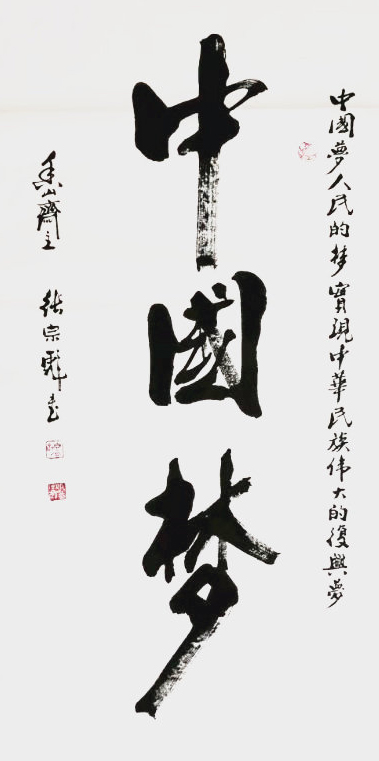 中國夢人民的梦實現中華民族伟大的復興夢
中國梦
香山齋主
張宗彪書